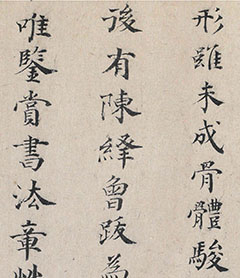 形雖未成骨體駿
後有陳繹曾跋為
唯鑒賞書法章